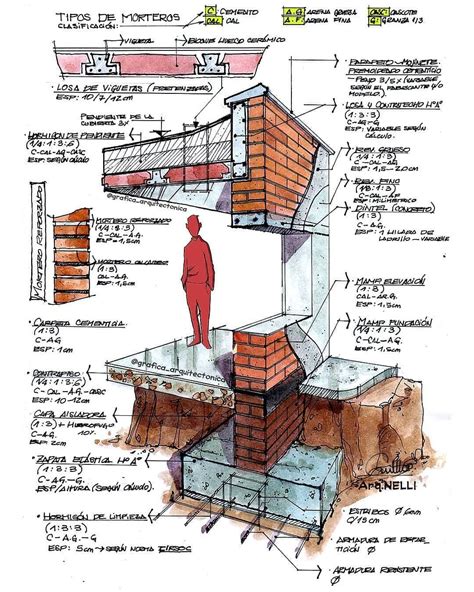 TIPOS DE MORTEROS
CLASIFICACIÓN:
C: CEMENTO
CAL: CAL
A.G: ARENA GRUESA
A.F: ARENA FINA
CASC: CASCOTE
G: GRANZA 1/3
VIGUETA
BLOQUE HUECO CERÁMICO
LOSA DE VIGUETAS (PRETENSADAS)
ESP: 10/7/12cm
PENDIENTE DE LA
CUBIERTA 3%
HORMIGÓN DE PENDIENTE
(1/4:1:3:6)
C-CAL-AG-CASC
ESP: SEGÚN CÁLCULO
@grafica_arquitectonica
MORTERO REFORZADO
MORTERO REFORZADO
(1/2:1:3)
C-CAL-AG
ESP: 1,5cm
(1:3)
ESP: 1,5cm
CARPETA CEMENTICIA
(1:3)
C-AG
ESP: 1cm
@grafica_arquitectonica
CONTRAPISO
(1/4:1:3:6)
C-CAL-AG-CASC
ESP: 10-12cm
CAPA AISLADORA
(1:3) + HIDROFUGO
10%
C-AG
ESP: 2cm
ZAPATA ELÁSTICA HºAº
(1:3:3)
C-A.G-G
ESP/ALTURA (SEGÚN CÁLCULO)
HORMIGÓN DE LIMPIEZA
(1:3:3)
C-A.G-G
ESP: 5cm → SEGÚN NORMA CIRSOC
PARAPETO-MOJINETE
PREMOLDEADO CEMENTICIO
LOSA Y CONTRATECHO HºAº
(1:3:3)
C-AG-G
ESP: VARIABLE SEGÚN
CÁLCULO
REV. GRUESO
(1/4:1:3)
C-CAL-A.G
ESP: 1,5-20cm
REV. FINO
(1/8:1:3)
C-CAL-A.F
ESP: MILIMÉTRICO
DINTEL (CONCRETO)
(1:3)
C-AG
ESP: 1 HILADA DE
LADRILLO-VARIABLE
MAMP ELEVACIÓN
(1:3)
CAL-AR.G.
ESP:
MAMP FUNDACIÓN
(1:3)
C-AR.G
ESP:
Arq.NELLI
ESTRIBOS Ø 6mm
C/15cm
ARMADURA DE REPAR-
TICIÓN Ø
ARMADURA RESISTENTE
Ø